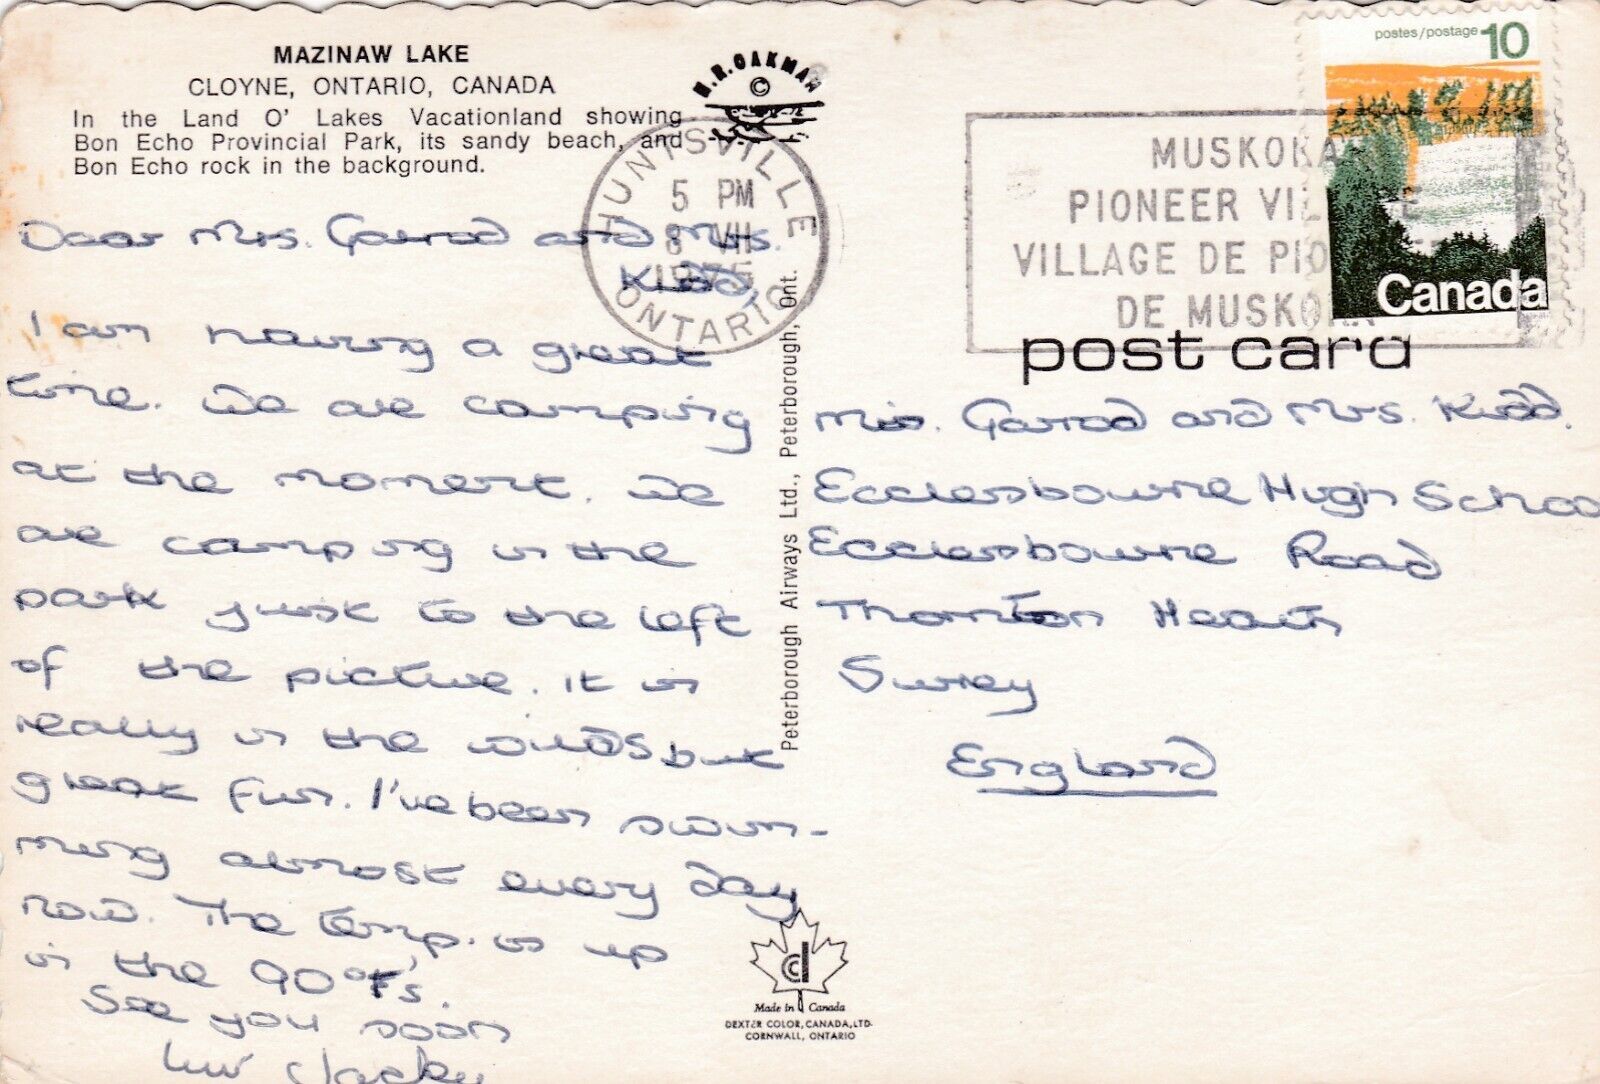 MAZINAW LAKE
CLOYNE, ONTARIO, CANADA
In the Land O' Lakes Vacationland showing
Bon Echo Provincial Park, its sandy beach, and
Bon Echo rock in the background.
H.R. OAKMAN
©
HUNTSVILLE
5 PM
8 VII
ONTARIO
postes/postage 10
Canada
MUSKOKA
PIONEER VILLAGE
VILLAGE DE PIONNIERS
DE MUSKOKA
post card
Dear Mrs. Garrod and Mrs.
Kidd,
I am having a great
time. We are camping
at the moment. We
are camping in the
park just to the left
of the picture. It is
really in the wilds but
great fun. I've been swim-
ming almost every day
now. The temp. is up
in the 90°F's.
See you soon
luv Jacky
Peterborough Airways Ltd., Peterborough, Ont.
Mrs. Garrod and Mrs. Kidd.
Ecclesbourne High School
Ecclesbourne Road
Thornton Heath
Surrey
England
cd
Made in Canada
DEXTER COLOR, CANADA, LTD.
CORNWALL, ONTARIO